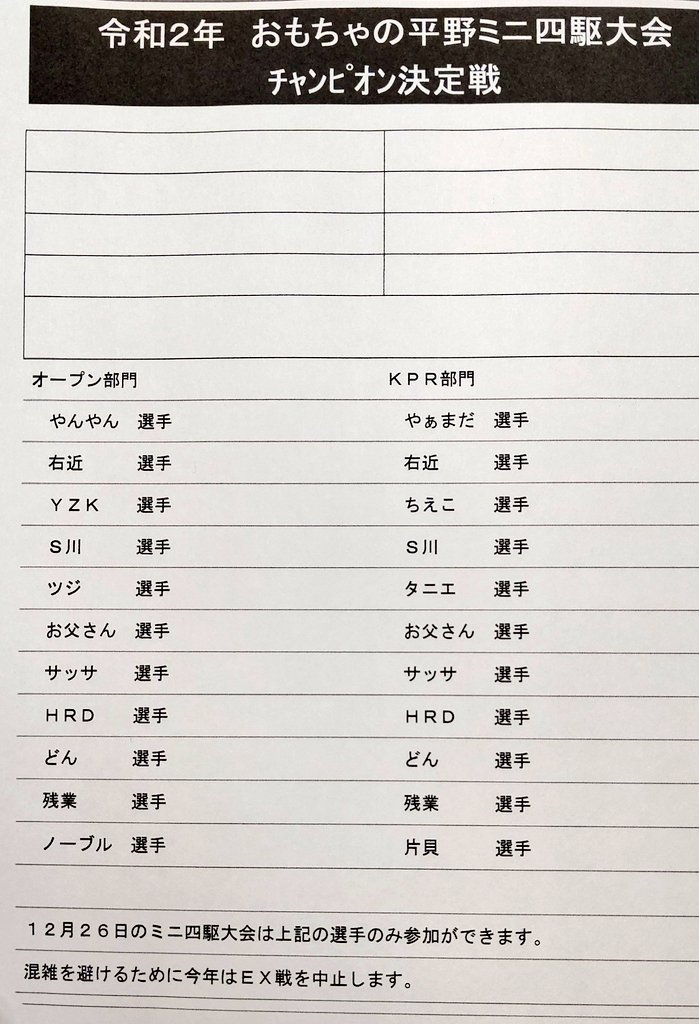 令和２年　おもちゃの平野ミニ四駆大会
チャンピオン決定戦
オープン部門　ＫＰＲ部門
やんやん　選手　やぁまだ　選手
右近　選手　右近　選手
ＹＺＫ　選手　ちえこ　選手
Ｓ川　選手　Ｓ川　選手
ツジ　選手　タニエ　選手
お父さん　選手　お父さん　選手
サッサ　選手　サッサ　選手
ＨＲＤ　選手　ＨＲＤ　選手
どん　選手　どん　選手
残業　選手　残業　選手
ノーブル　選手　片貝　選手
１２月２６日のミニ四駆大会は上記の選手のみ参加ができます。
混雑を避けるために今年はＥＸ戦を中止します。